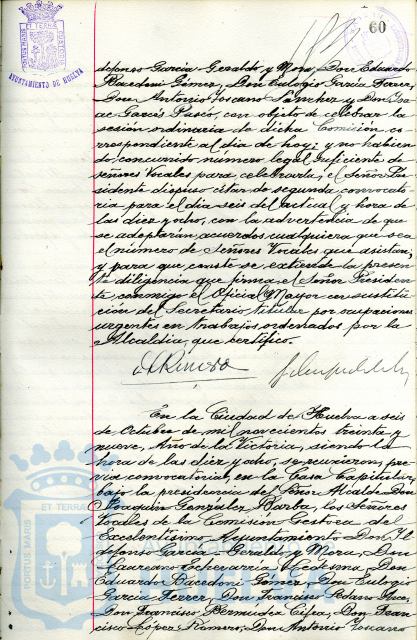 60
PORTUS MARIS ET TERRAE CUSTODIA
AYUNTAMIENTO DE HUELVA
defonso García Geraldo y Mora, Don Eduardo
Racedoni Gómez, Don Eulogio García Ferrer,
Don Antonio Toscano Sánchez y Don Isa-
ac García Pusco, con objeto de celebrar la
sesión ordinaria de dicha Comisión co-
rrespondiente al día de hoy; y no habien
do concurrido número legal suficiente de
señores Vocales para celebrarla, el Señor Pre-
sidente dispuso citar de segunda convocato-
ria para el día seis del actual y hora de
las diez y ocho, con la advertencia de que
se adoptarán acuerdos cualquiera que sea
el número de Señores Vocales que asistan;
y para que conste se extiende la presen-
te diligencia que firma el Señor Presiden-
te conmigo el Oficial Mayor en sustitu-
ción del Secretario titular por ocupaciones
urgentes en trabajos ordenados por la
Alcaldía, que certifico.
En la Ciudad de Huelva a seis
de Octubre de mil novecientos treinta y
nueve, Año de la Victoria, siendo la
hora de las diez y ocho, se reunieron, pre-
via convocatoria, en la Casa Capitular,
bajo la presidencia del Señor Alcalde Don
Joaquín González Barba, los Señores
Vocales de la Comisión Gestora del
Excelentísimo Ayuntamiento Don Il-
defonso García Geraldo y Mora, Don
Laureano Echevarría Don
Eduardo Racedoni Gómez, Don Eulogio
García Ferrer, Don Francisco
Don Francisco Bermúdez Don Fran-
cisco López Romero, Don Antonio Toscano
PORTUS MARIS ET TERRAE